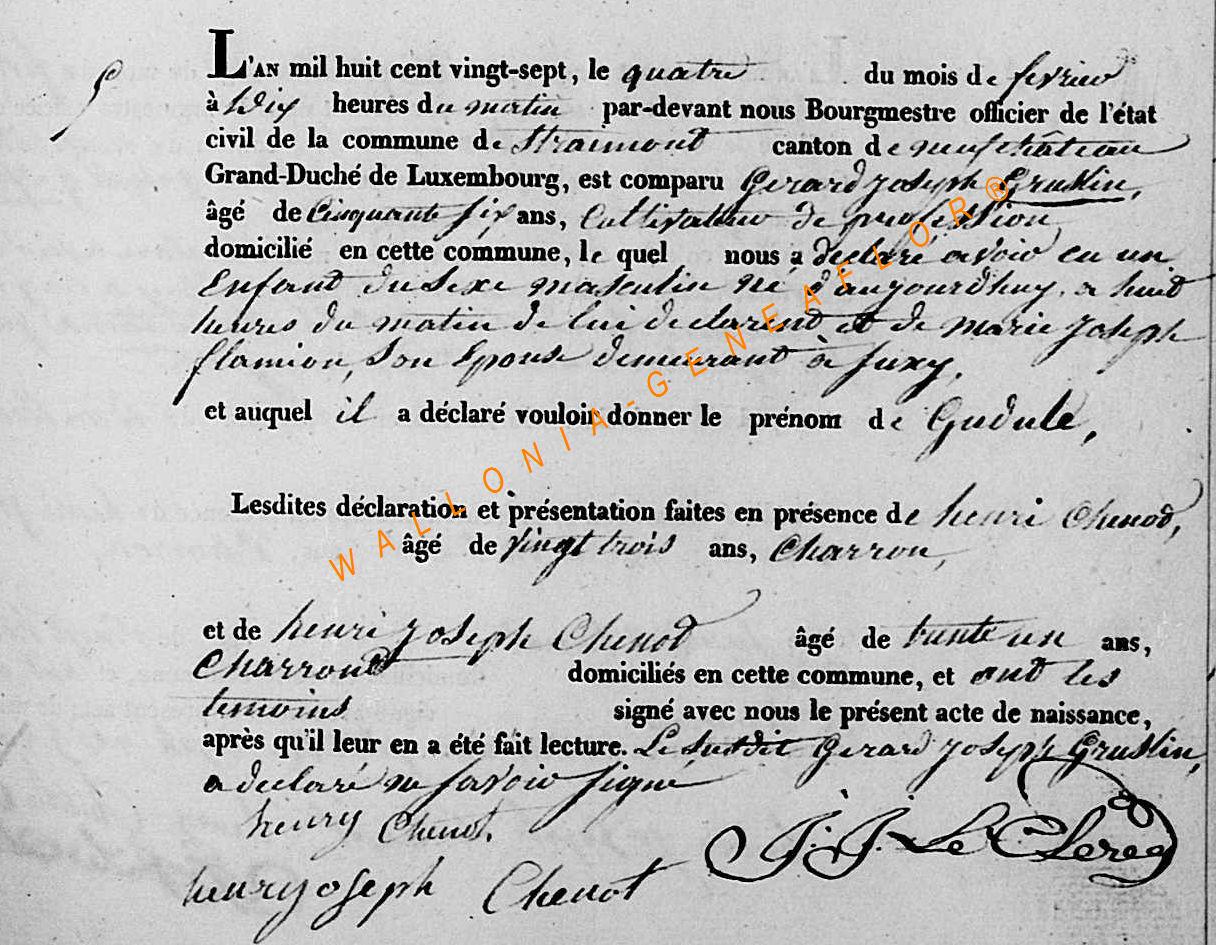 5
L'AN mil huit cent vingt-sept, le quatre du mois de fevrier
à Dix heures du matin par-devant nous Bourgmestre officier de l'état
civil de la commune de Straimont canton de neufchâteau
Grand-Duché de Luxembourg, est comparu Gerard joseph Gruslin,
âgé de Cinquante six ans, Cultivateur de profession
domicilié en cette commune, le quel nous a declaré avoir eu un
Enfant du Sexe masculin né d'aujourdhuy, a huit
heures du matin de lui declarend et de marie joseph
flamion, Son Epouse demeurant à Suxy,
et auquel il a déclaré vouloir donner le prénom de Gudule,
Lesdites déclaration et présentation faites en présence de henri Chenot,
âgé de vingt trois ans, Charron,
et de henri joseph Chenot âgé de trente un ans,
Charron domiciliés en cette commune, et ont les
temoins signé avec nous le présent acte de naissance,
après qu'il leur en a été fait lecture. Le Susdit Gerard joseph Gruslin,
a declaré ne savoir signé
henry Chenot.
J. J. Le Clereq
henry joseph Chenot
WALLONIA-GENEAFLOR®